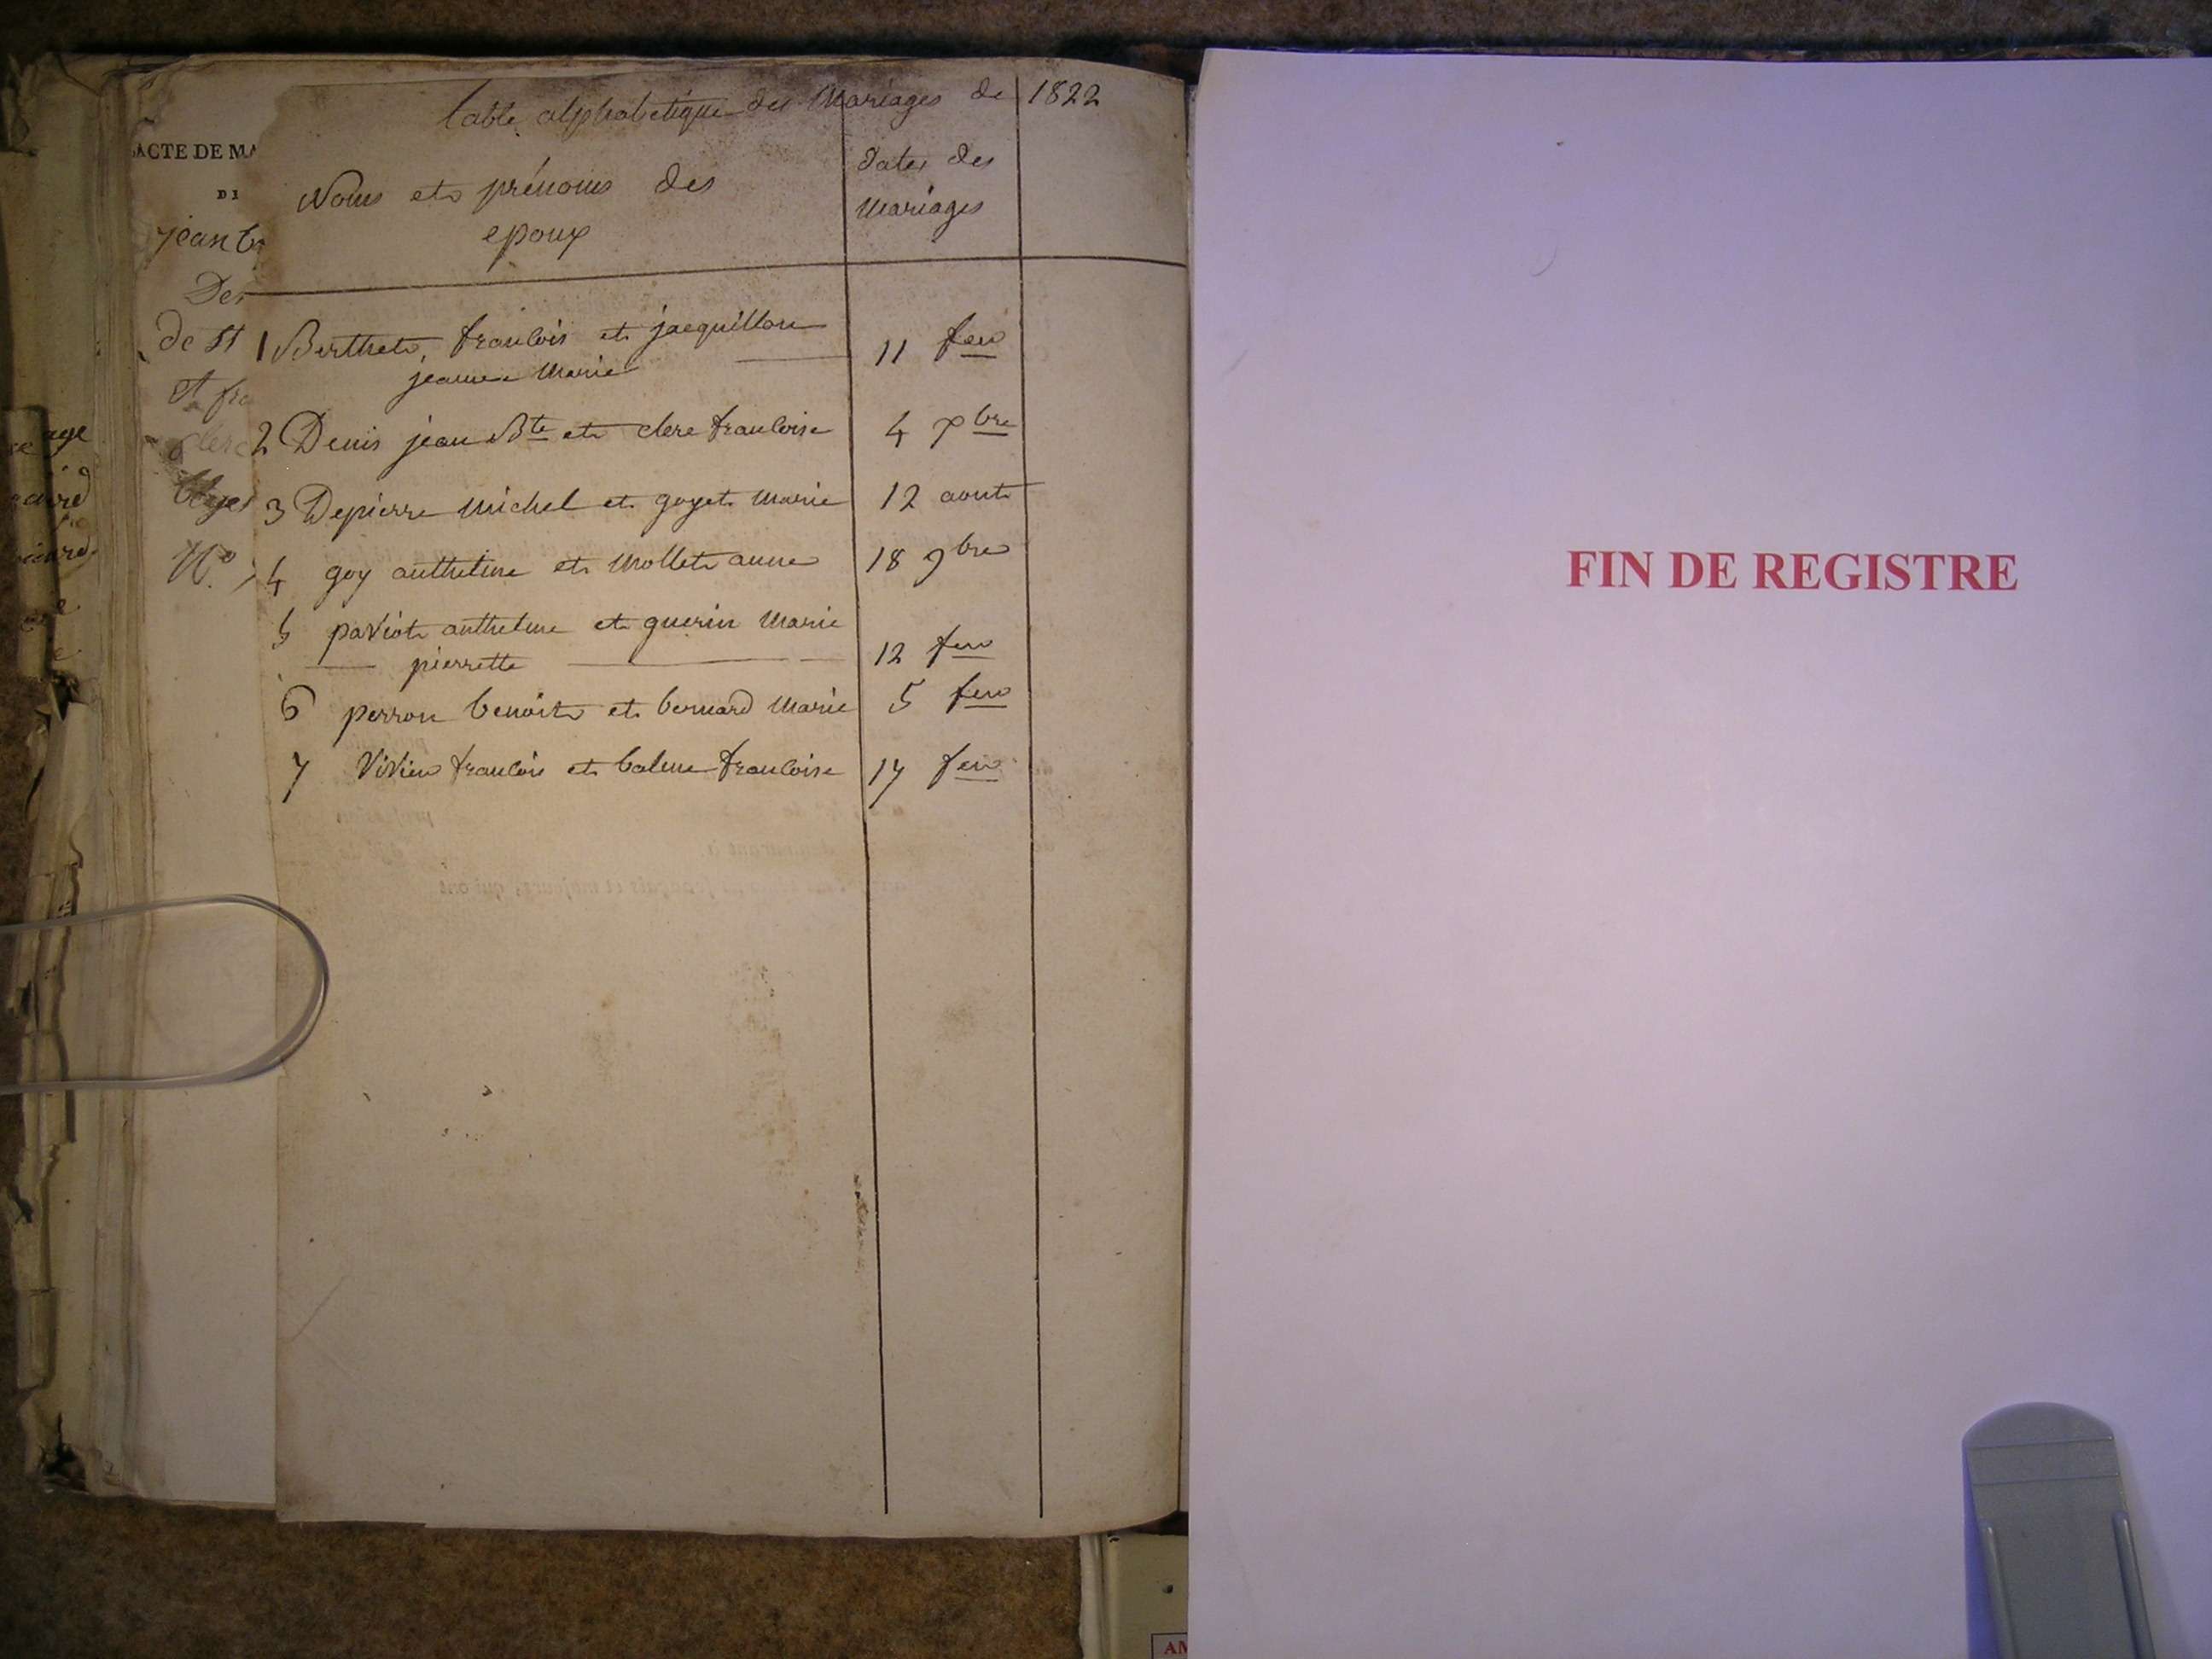 Table alphabetique des Mariages de 1822
Noms et prénoms des
epoux
dates des
Mariages
1 Berthet, francois et jacquillon
jeanne Marie
11 fev
2 Denis jean Bte et clerc francoise
4 xbre
3 Depierre Michel et goyet Marie
12 aout
4 goy anthelme et Mollet anne
18 9bre
5 paviot anthelme et guerin Marie
pierrette
12 fev
6 perron benoit et bernard Marie
5 fev
7 Vivien francois et balme francoise
17 fev
ACTE DE MA
DE
jean b
De
de St
et fra
clerc
N.o
age
FIN DE REGISTRE
AM